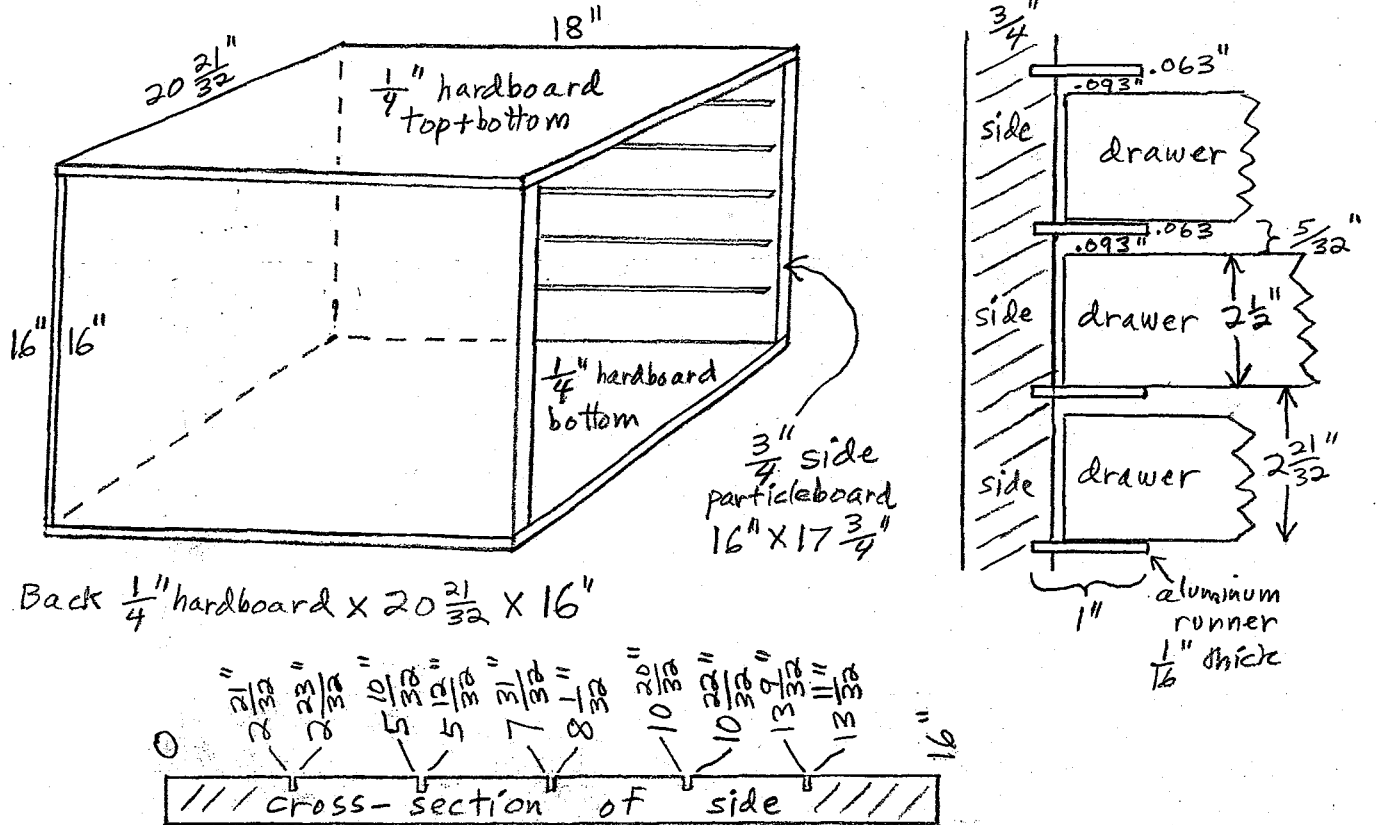 18"
20 21/32"
1/4" hardboard
top+bottom
16" 16"
1/4" hardboard
bottom
3/4" side
particleboard
16" X 17 3/4"
Back 1/4" hardboard X 20 21/32 X 16"
3/4"
.063"
.093"
side
drawer
.063
.093"
5/32"
side
drawer 2 1/2"
side
drawer
2 21/32"
1"
aluminum
runner
1/16" thick
0
2 21/32"
2 23/32"
5 10/32"
5 12/32"
7 31/32"
8 1/32"
10 20/32"
10 22/32"
13 9/32"
13 11/32"
16"
cross-section of side